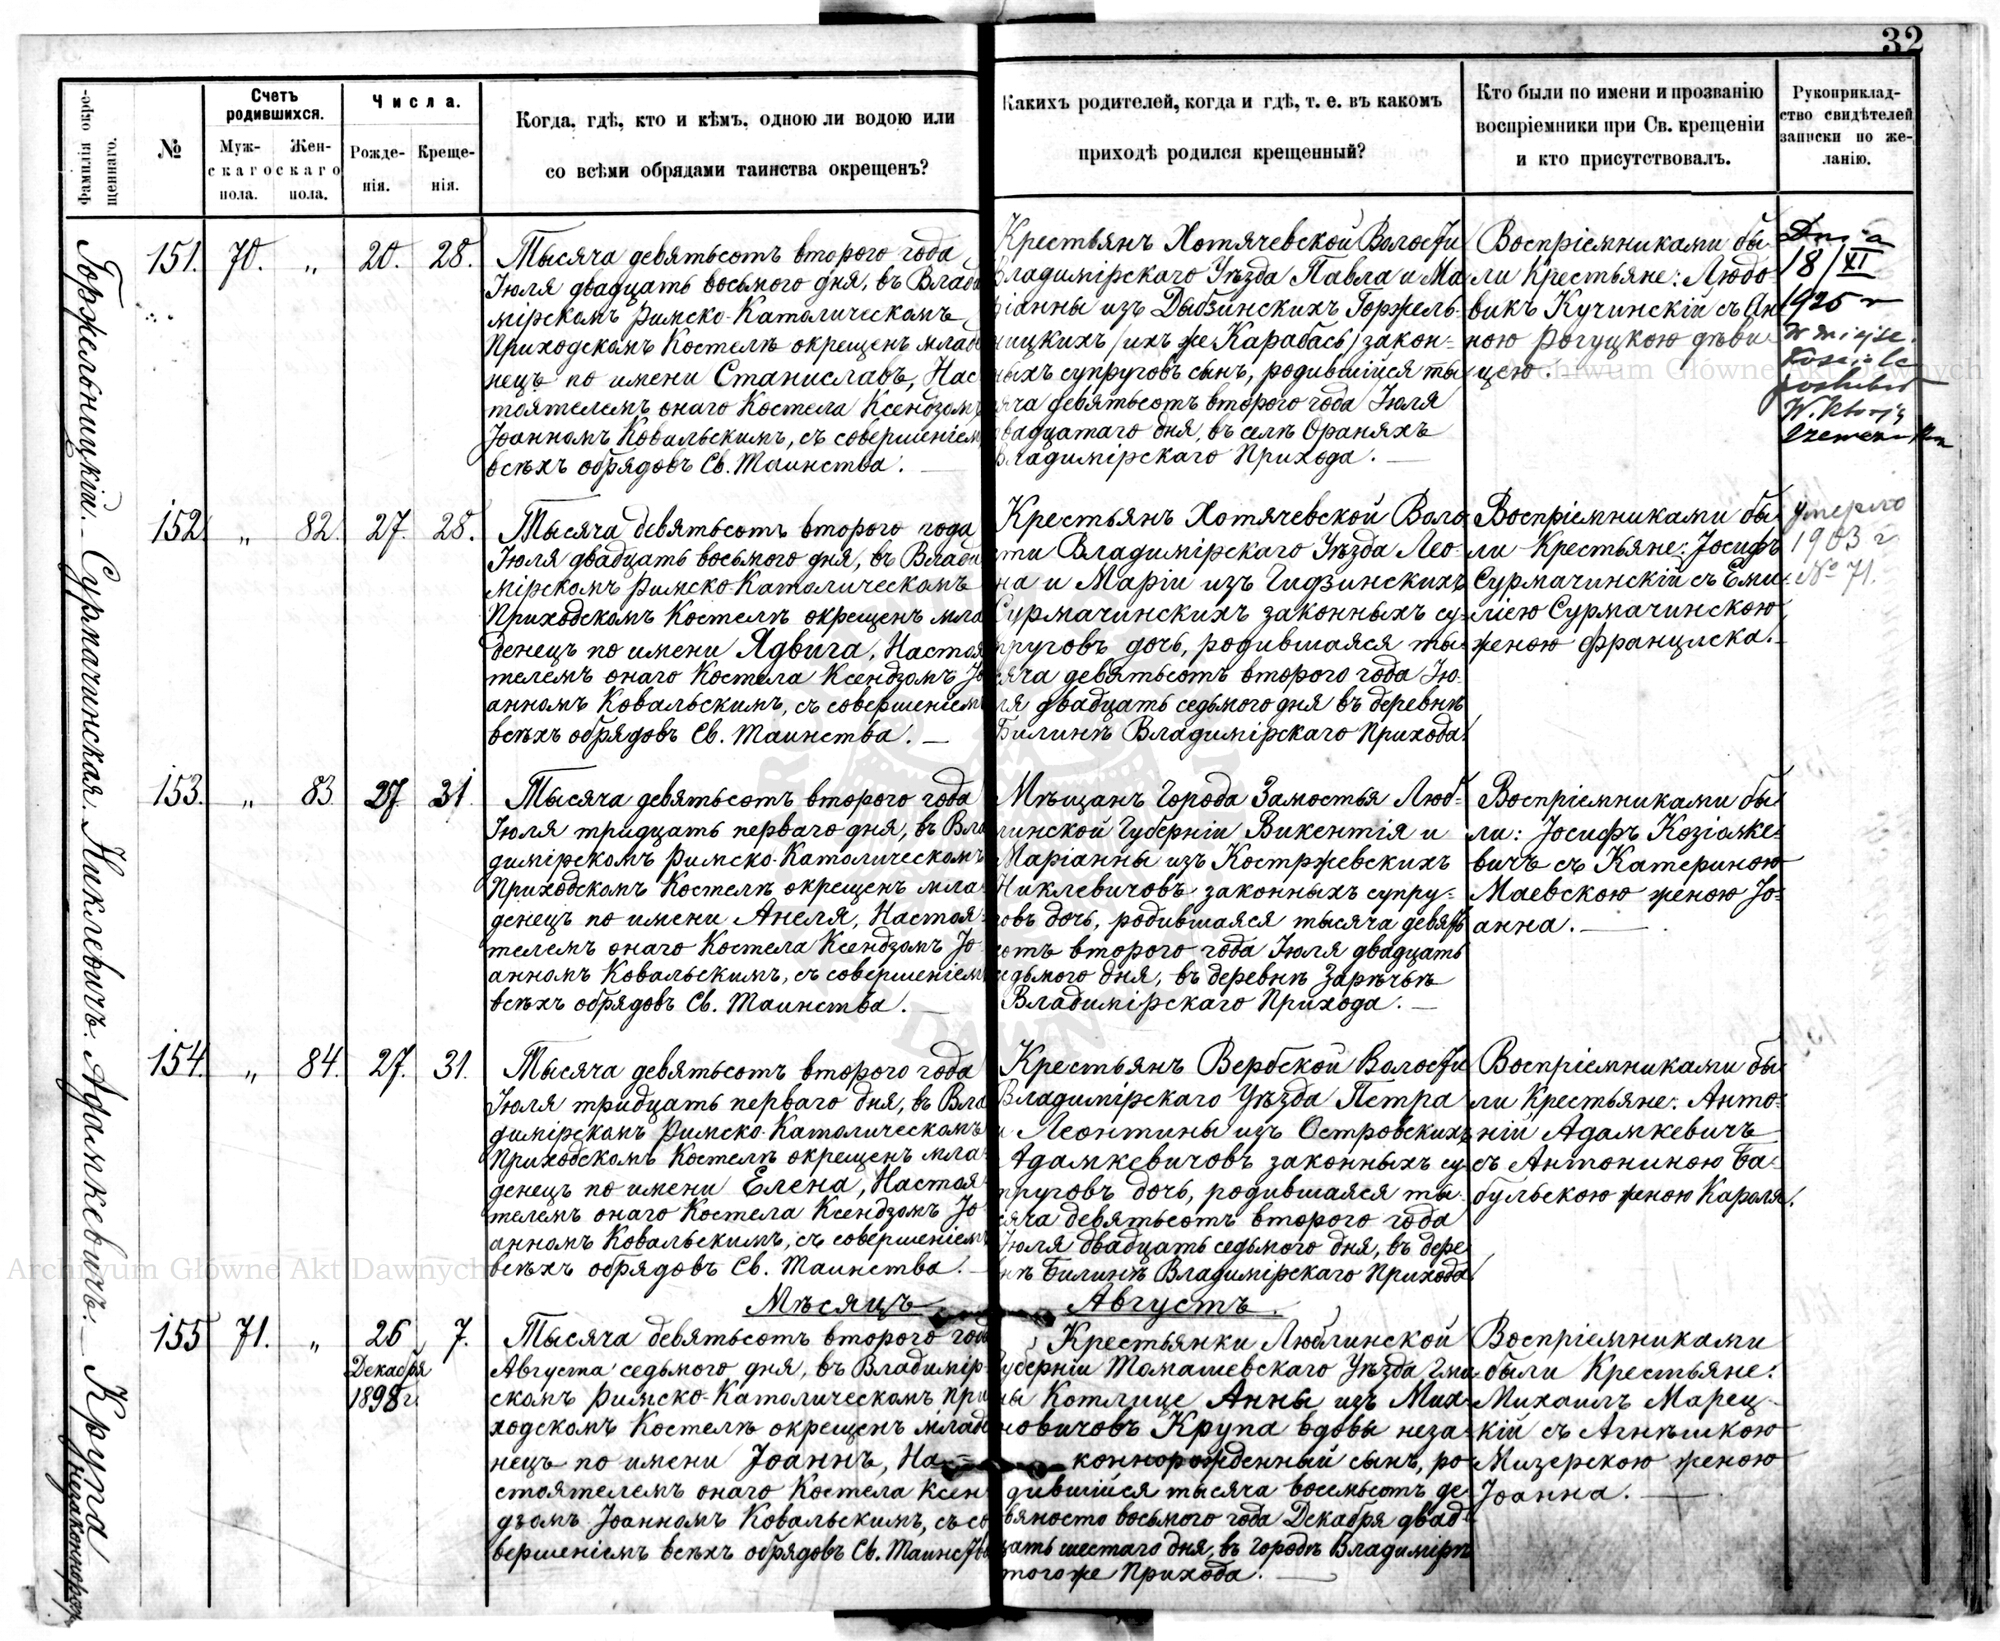 32
Фамилія окрещеннаго.
№
Счетъ родившихся.
Мужскаго пола.
Женскаго пола.
Числа.
Рожденія.
Крещенія.
Когда, гдѣ, кто и кѣмъ, одною ли водою или
со всѣми обрядами таинства окрещенъ?
Какихъ родителей, когда и гдѣ, т. е. въ какомъ
приходѣ родился крещенный?
Кто были по имени и прозванію
воспріемники при Св. крещеніи
и кто присутствовалъ.
Рукоприклад-
ство свидѣтелей
записки по же-
ланію.
Горжельницкій.
151. 70. „ 20. 28.
Тысяча девятьсотъ второго года
Іюля двадцать восьмого дня, въ Влади
мірскомъ Римско-Католическомъ
Приходскомъ Костелѣ окрещенъ младе
нецъ по имени Станиславъ, Нас
тоятелемъ онаго Костела Ксендзомъ
Іоанномъ Ковальскимъ, съ совершеніемъ
всѣхъ обрядовъ Св. Таинства.
Крестьянъ Хотячевской Волости
Владимірскаго Уѣзда Павла и Ма
ріанны изъ Дыбзинскихъ Горжель-
ницкихъ /ихъ же Карабась/ закон-
ныхъ супруговъ сынъ, родившійся ты
сяча девятьсотъ второго года Іюля
двадцатаго дня, въ селѣ Ораняхъ
Владимірскаго Прихода.
Воспріемниками бы-
ли Крестьяне: Людо-
викъ Кучинскій съ Ан
ною Рогуцкою дѣви
цею.
Dnia
18/XI
1925 r
W miejsc.
Сурмачинская.
152. „ 82. 27. 28.
Тысяча девятьсотъ второго года
Іюля двадцать восьмого дня, въ Влади
мірскомъ Римско-Католическомъ
Приходскомъ Костелѣ окрещенъ мла
денецъ по имени Ядвига, Настоя
телемъ онаго Костела Ксендзомъ Іо
анномъ Ковальскимъ, съ совершеніемъ
всѣхъ обрядовъ Св. Таинства.
Крестьянъ Хотячевской Воло
сти Владимірскаго Уѣзда Лео-
на и Маріи изъ Гидзинскихъ
Сурмачинскихъ законныхъ су-
пруговъ дочь, родившаяся ты-
сяча девятьсотъ второго года Ію-
ля двадцать седьмого дня въ деревнѣ
Билинѣ Владимірскаго Прихода.
Воспріемниками бы-
ли Крестьяне: Іосифъ
Сурмачинскій съ Еми-
ліею Сурмачинскою
женою Францишка.
умерло
1903 г
№ 71.
Никлевичъ.
153. „ 83 27 31
Тысяча девятьсотъ второго года
Іюля тридцать перваго дня, въ Вла
димірскомъ Римско-Католическомъ
Приходскомъ Костелѣ окрещенъ мла-
денецъ по имени Анеля, Настоя-
телемъ онаго Костела Ксендзомъ Іо-
анномъ Ковальскимъ, съ совершеніемъ
всѣхъ обрядовъ Св. Таинства.
Мѣщанъ Города Замостья Люб-
линской Губерніи Викентія и
Маріанны изъ Костржевскихъ
Никлевичовъ законныхъ супру-
говъ дочь, родившаяся тысяча девять
сотъ второго года Іюля двадцать
седьмого дня, въ деревнѣ Зарѣчьѣ
Владимірскаго Прихода.
Воспріемниками бы-
ли: Іосифъ Козіолке-
вичъ съ Катериною
Маевскою женою Іо-
анна.
Адамкевичъ.
154. „ 84. 27. 31.
Тысяча девятьсотъ второго года
Іюля тридцать перваго дня, въ Вла
димірскомъ Римско-Католическомъ
Приходскомъ Костелѣ окрещенъ мла-
денецъ по имени Елена, Настоя-
телемъ онаго Костела Ксендзомъ Іо
анномъ Ковальскимъ, съ совершеніемъ
всѣхъ обрядовъ Св. Таинства.
Крестьянъ Вербской Волости
Владимірскаго Уѣзда Петра
и Леонтины изъ Островскихъ
Адамкевичовъ законныхъ су-
пруговъ дочь, родившаяся ты-
сяча девятьсотъ второго года
Іюля двадцать седьмого дня, въ дере
внѣ Билинѣ Владимірскаго Прихода
Воспріемниками бы
ли Крестьяне: Анто-
ній Адамкевичъ
съ Антониною Ба-
бульскою женою Кароля.
Мѣсяцъ Августъ.
Крупа незаконнорож.
155 71. „ 26 7.
Декабря
1898 г.
Тысяча девятьсотъ второго года
Августа седьмого дня, въ Владимір-
скомъ Римско-Католическомъ При
ходскомъ Костелѣ окрещенъ младе
нецъ по имени Іоаннъ, На-
стоятелемъ онаго Костела Ксен
дзомъ Іоанномъ Ковальскимъ, съ со
вершеніемъ всѣхъ обрядовъ Св. Таинства
Крестьянки Люблинской
Губерніи Томашевскаго Уѣзда, Гми
ны Котлице Анны изъ Мих-
новичовъ Крупа вдовы неза-
коннорожденный сынъ, ро-
дившійся тысяча восемьсотъ де-
вяносто восьмого года Декабря двад-
цать шестаго дня, въ городѣ Владимірѣ
тогоже Прихода.
Воспріемниками
были Крестьяне:
Михаилъ Марец-
кій съ Агнѣшкою
Мизерскою женою
Іоанна.
Archiwum Główne Akt Dawnych
Archiwum Główne Akt Dawnych